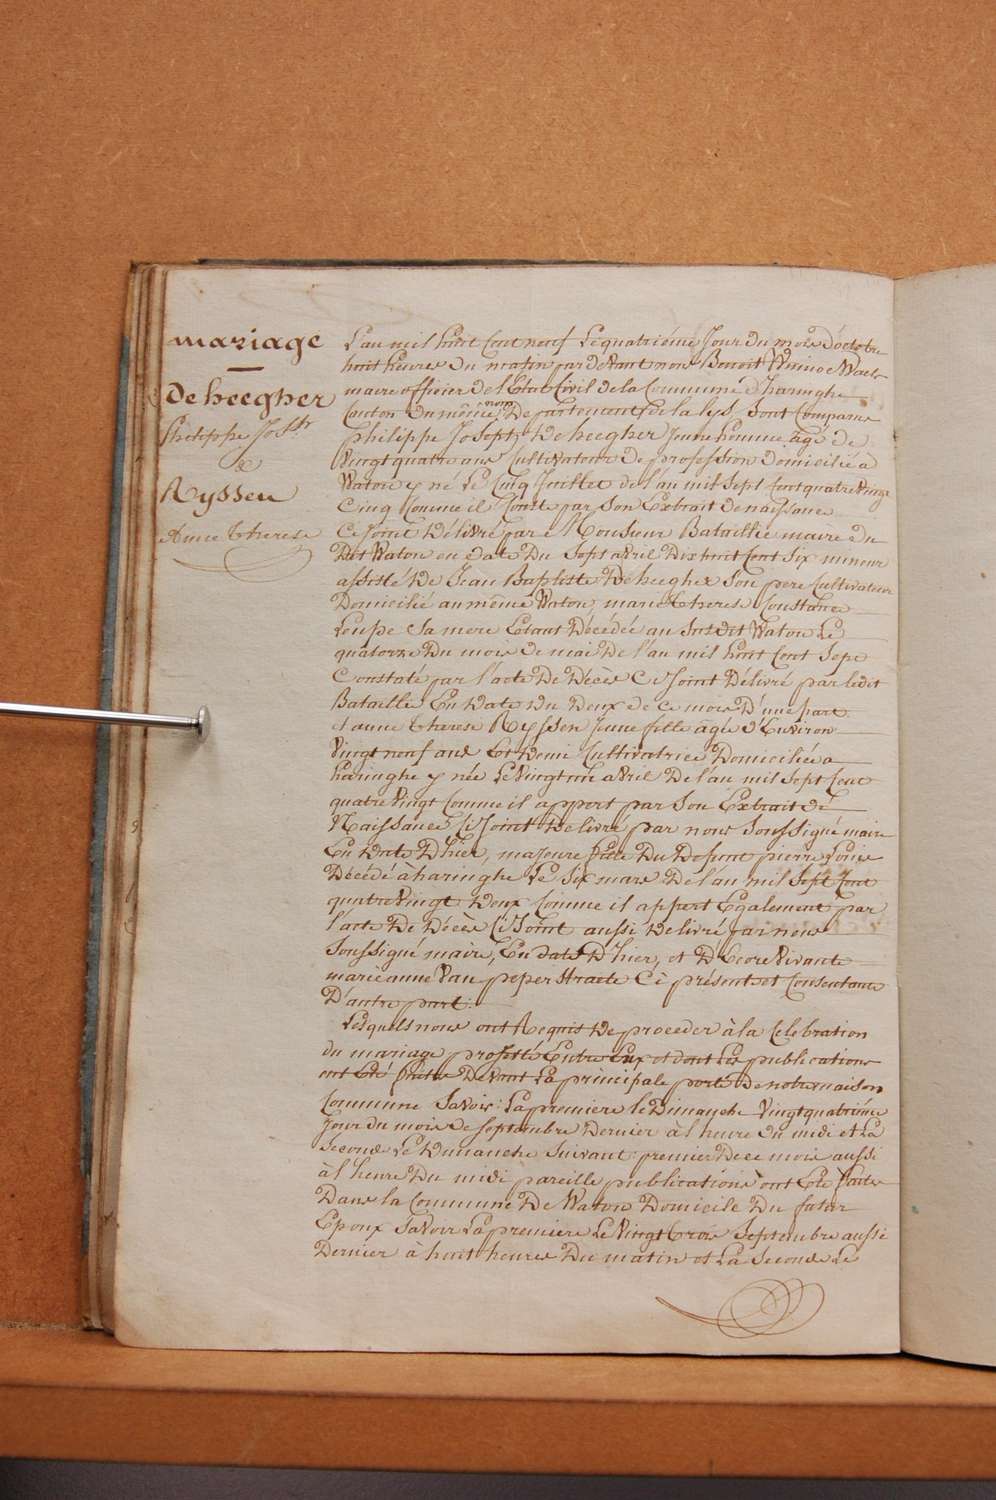 mariage
Deheegher
Philippe Josth
&
Ryssen
Anne therese
L'an mil huit Cent neuf Le quatriéme Jour du mois d'octobre
huit heures du matin par devant nous Benoit Winnoc Waels
maire officier de l'Etat Civil de la Commune d'haringhe
Canton du même nom Departement de la lys, sont Comparus
philippe Joseph Deheegher Jeune homme âgé de
Vingt quatre ans Cultivateur de profession domicilié à
Waton y né Le Cinq Juillet de l'an mil Sept Cent quatre Vingt
Cinq Comme il Conste par Son Extrait de naissance
Ci Joint délivré par Monsieur Bataillie maire du
Dit Waton en date Du Sept avril Dix huit Cent Six mineur
assisté De Jean Baptiste Deheegher Son pere Cultivateur
Domicilié au même Waton, marie therese Constance
Leupe Sa mere Etant Décédée au Susdit Waton Le
quatorze Du mois de mai De l'an mil huit Cent Sept
Constaté par l'acte De Décès Ci Joint Délivré par ledit
Bataillie En Date du Deux de Ce mois D'une part
et anne therese Ryssen Jeune fille âgée d'Environ
Vingt neuf ans Et Demi Cultivatrice Domiciliée a
haringhe y née Le Vingt avril De l'an mil Sept Cent
quatre Vingt Comme il appert par Son Extrait de
Naissance Ci Joint Delivré par nous Soussigné maire
En Date D'hier, majeure fille Du Defunt pierre Louis
Décédé à haringhe Le Six mars De l'an mil Sept Cent
quatre Vingt Deux Comme il appert Egalement par
l'acte De Décès Ci Joint aussi Delivré par nous
Soussigné maire, En date D'hier, et D'Ecore Vivante
marie anne Van peperstraete Ci présente et Consentante
D'autre part.
Lesquels nous ont Requis De proceder à la Celebration
du mariage projetté Entre Eux et dont Les publications
ont Eté faites Devant La principale porte De notre maison
Commune Savoir: La premiere le Dimanche Vingt quatriéme
Jour du mois de Septembre Dernier à l'heure du midi et La
Seconde Le Dimanche Suivant: premier De ce mois aussi
à l'heure Du midi pareille publications ont Eté faites
Dans la Commune De Waton Domicile Du futur
Epoux Savoir La premiere Le Vingt trois Septembre aussi
Dernier à huit heures Du matin et La Seconde Le